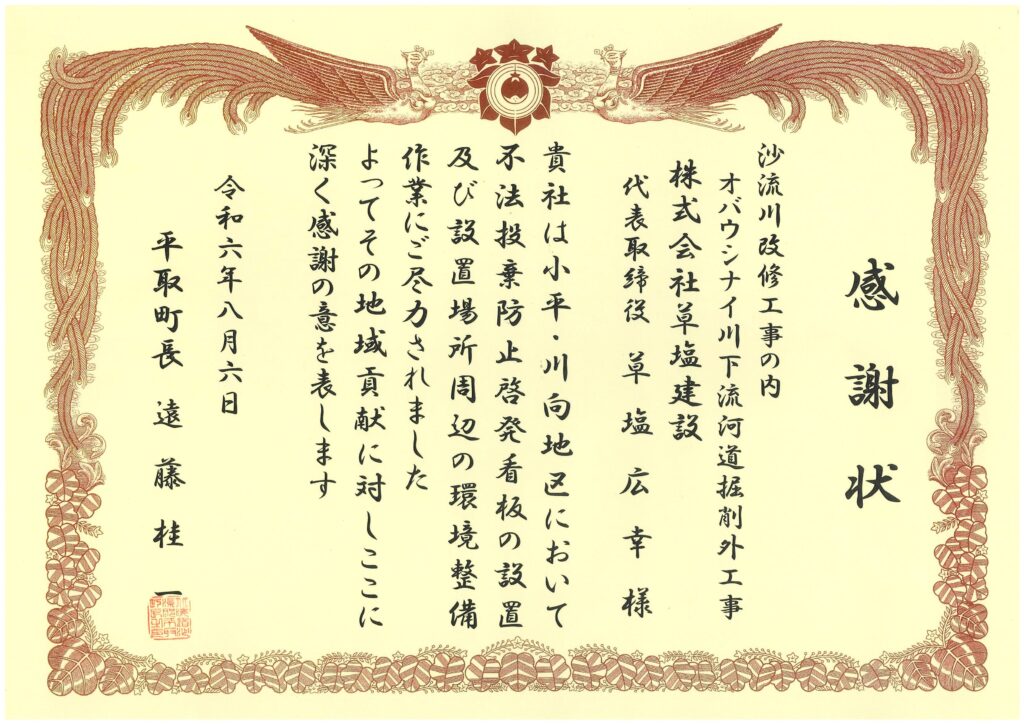 感謝状
沙流川改修工事の内
オバウシナイ川下流河道掘削外工事
株式会社草塩建設
代表取締役 草塩広幸様
貴社は小平・川向地区において
不法投棄防止啓発看板の設置
及び設置場所周辺の環境整備
作業にご尽力されました
よってその地域貢献に対しここに
深く感謝の意を表します
令和六年八月六日
平取町長 遠藤桂一